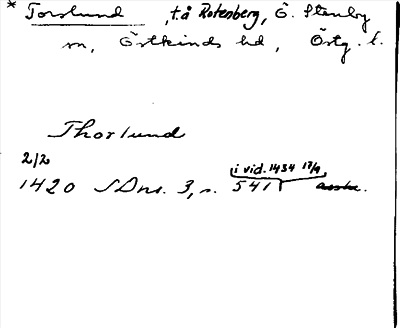 * Torslund, t.å Rotenberg, Ö. Stenby
sn, Östkinds hd, Östg. l.
Thorlund
2/2
i vid. 1434 17/9
1420 SDns. 3, s. 541